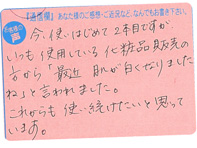 お客様の声
「通信欄」あなた様のご感想・ご近況など、なんでもお書き下さい。
今、使いはじめて2本目ですが、
いつも使用している化粧品販売の
方から「最近 肌が白くなりました
ね」と言われました。
これからも使い続けたいと思って
います。